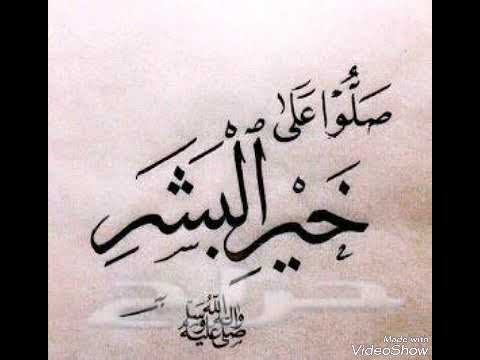 صَلُّوا عَلَىٰ
خَيْرِ الْبَشَرِ
صلى الله عليه وسلم
Made with
VideoShow